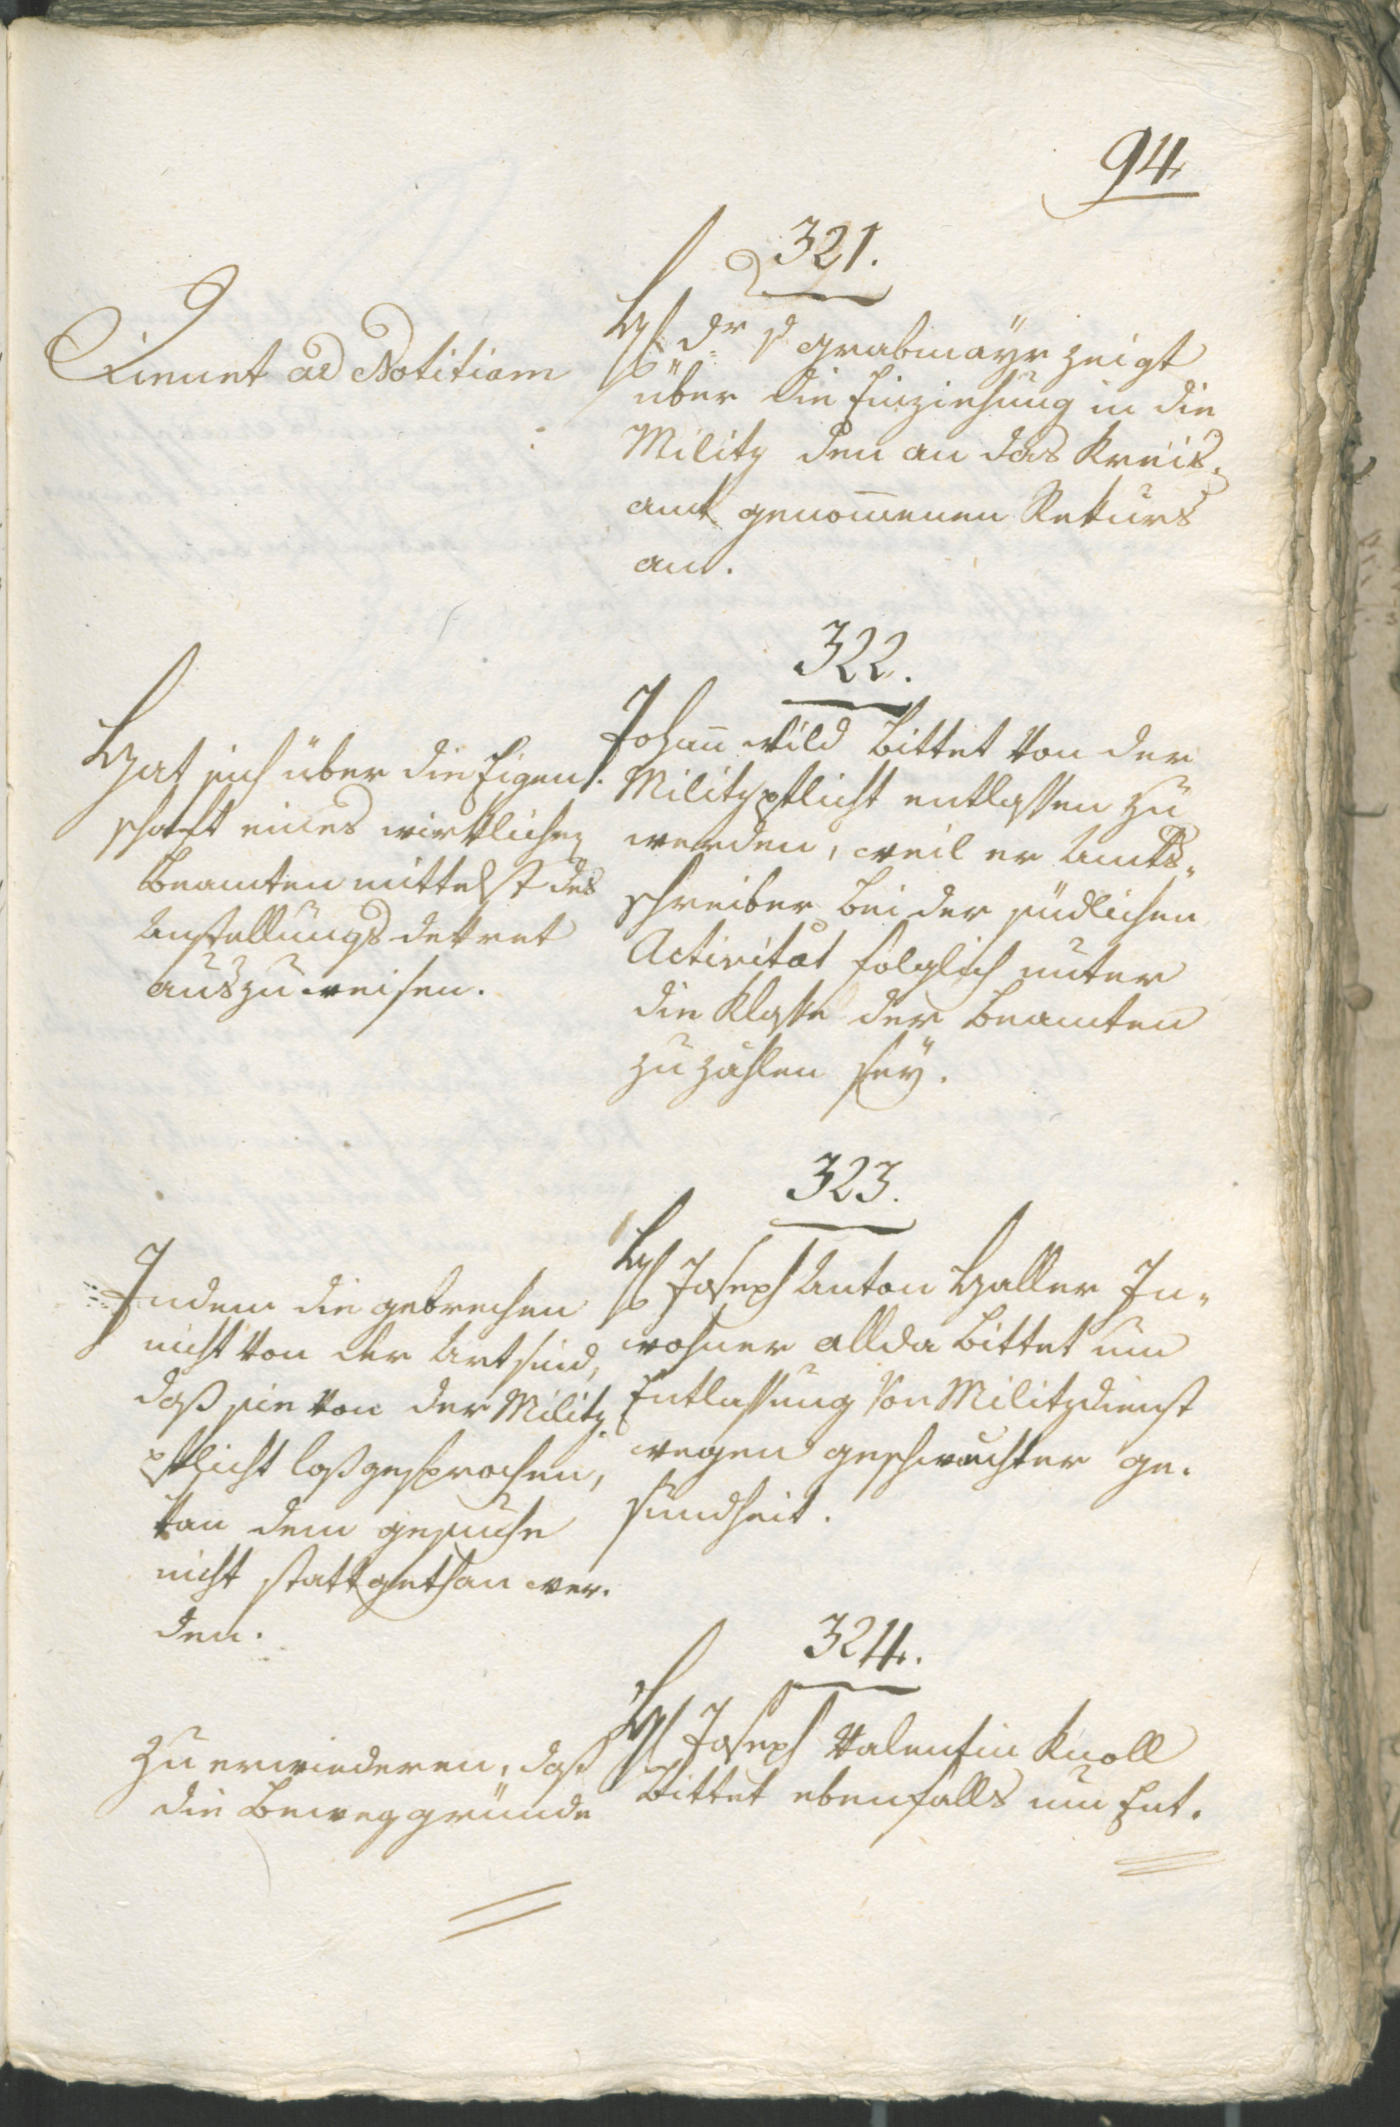 94
321.
Dienet ad Notitiam
H. Dr v grabmaÿr zeigt
über die Einziehung in die
Militz den an das Kreis-
amt genommenen Rekurs
an.
322.
Hat sich über die Eigen-
schaft eines wirklichen
Beamten mittelst des
Anstellungs dekret
auszuweisen.
Johann Wild bittet von der
Militzpflicht entlassen zu
werden, weil er Amts-
schreiber bei der südlichen
Activität folglich unter
die Klasse der Beamten
zu zählen seÿ.
323.
Indem die gebrechen
nicht von der Art sind,
daß sie von der Militz
pflicht loßgesprochen,
kan dem gesuche
nicht statt gethan wer-
den.
H. Joseph Anton Haller In-
wohner allda bittet um
Entlassung von Militzdienst
wegen geschwächter ge-
sundheit.
324.
Zu erwiederen, daß
die Beweggründe
H. Joseph Valentin Knoll
bittet ebenfalls um Ent-